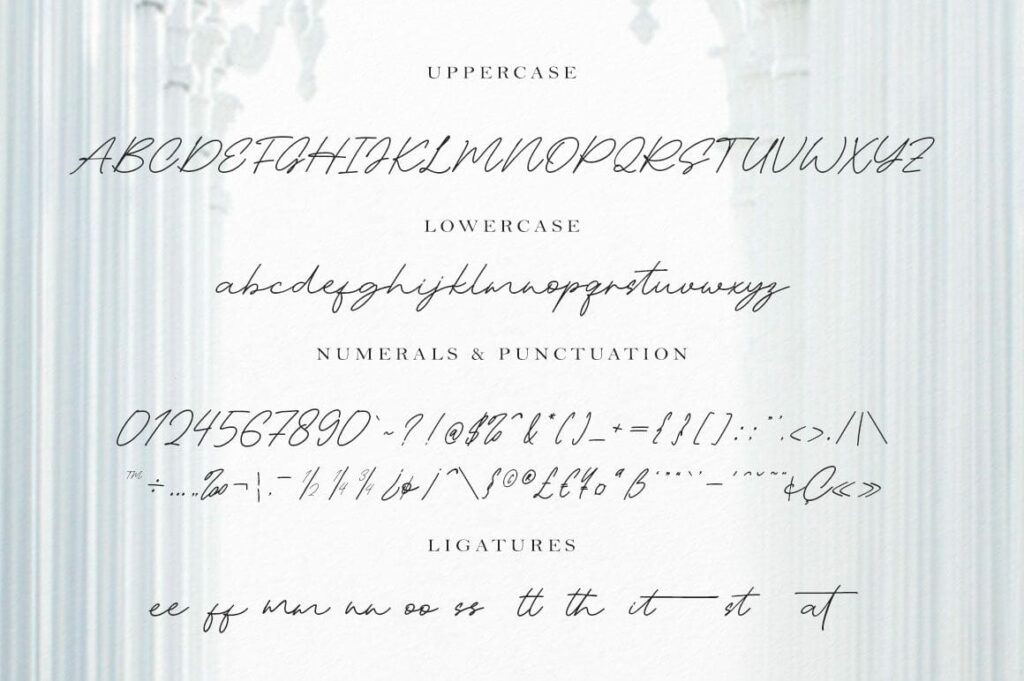 UPPERCASE
ABCDEFGHIJKLMNOPQRSTUVWXYZ
LOWERCASE
abcdefghijklmnopqrstuvwxyz
NUMERALS & PUNCTUATION
0124567890`~?!@$%^&*()_+={}[]:;"',<>./|\
™÷…„‰¬¦.¯½¼¾¿ø¡^\§©®£€¥ºªß–¢Ç«»
LIGATURES
ee ff mm nn oo ss tt th it st at